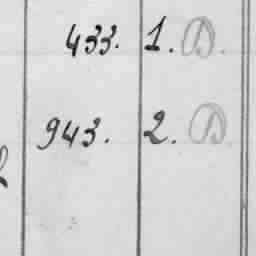 433. 1. D.
943. 2. D.